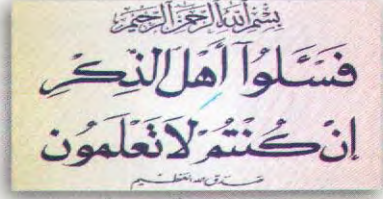 بِسْمِ اللَّهِ الرَّحْمَٰنِ الرَّحِيمِ
فَسْـَٔلُوٓا۟ أَهْلَ الذِّكْرِ
إِن كُنْتُمْ لَا تَعْلَمُونَ
صدق الله العظيم